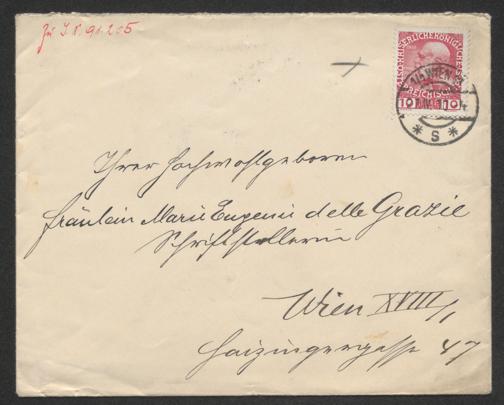 Zu I.N. 91.205
KAISERLICHE KÖNIGLICHE
REICHISCHE
10 10
1/1 WIEN
IV 10
* S *
Ihrer Hochwohlgeboren
Fräulein Marie Eugenie delle Grazie
Schriftstellerin
Wien XVIII/1
Haizingergasse 47